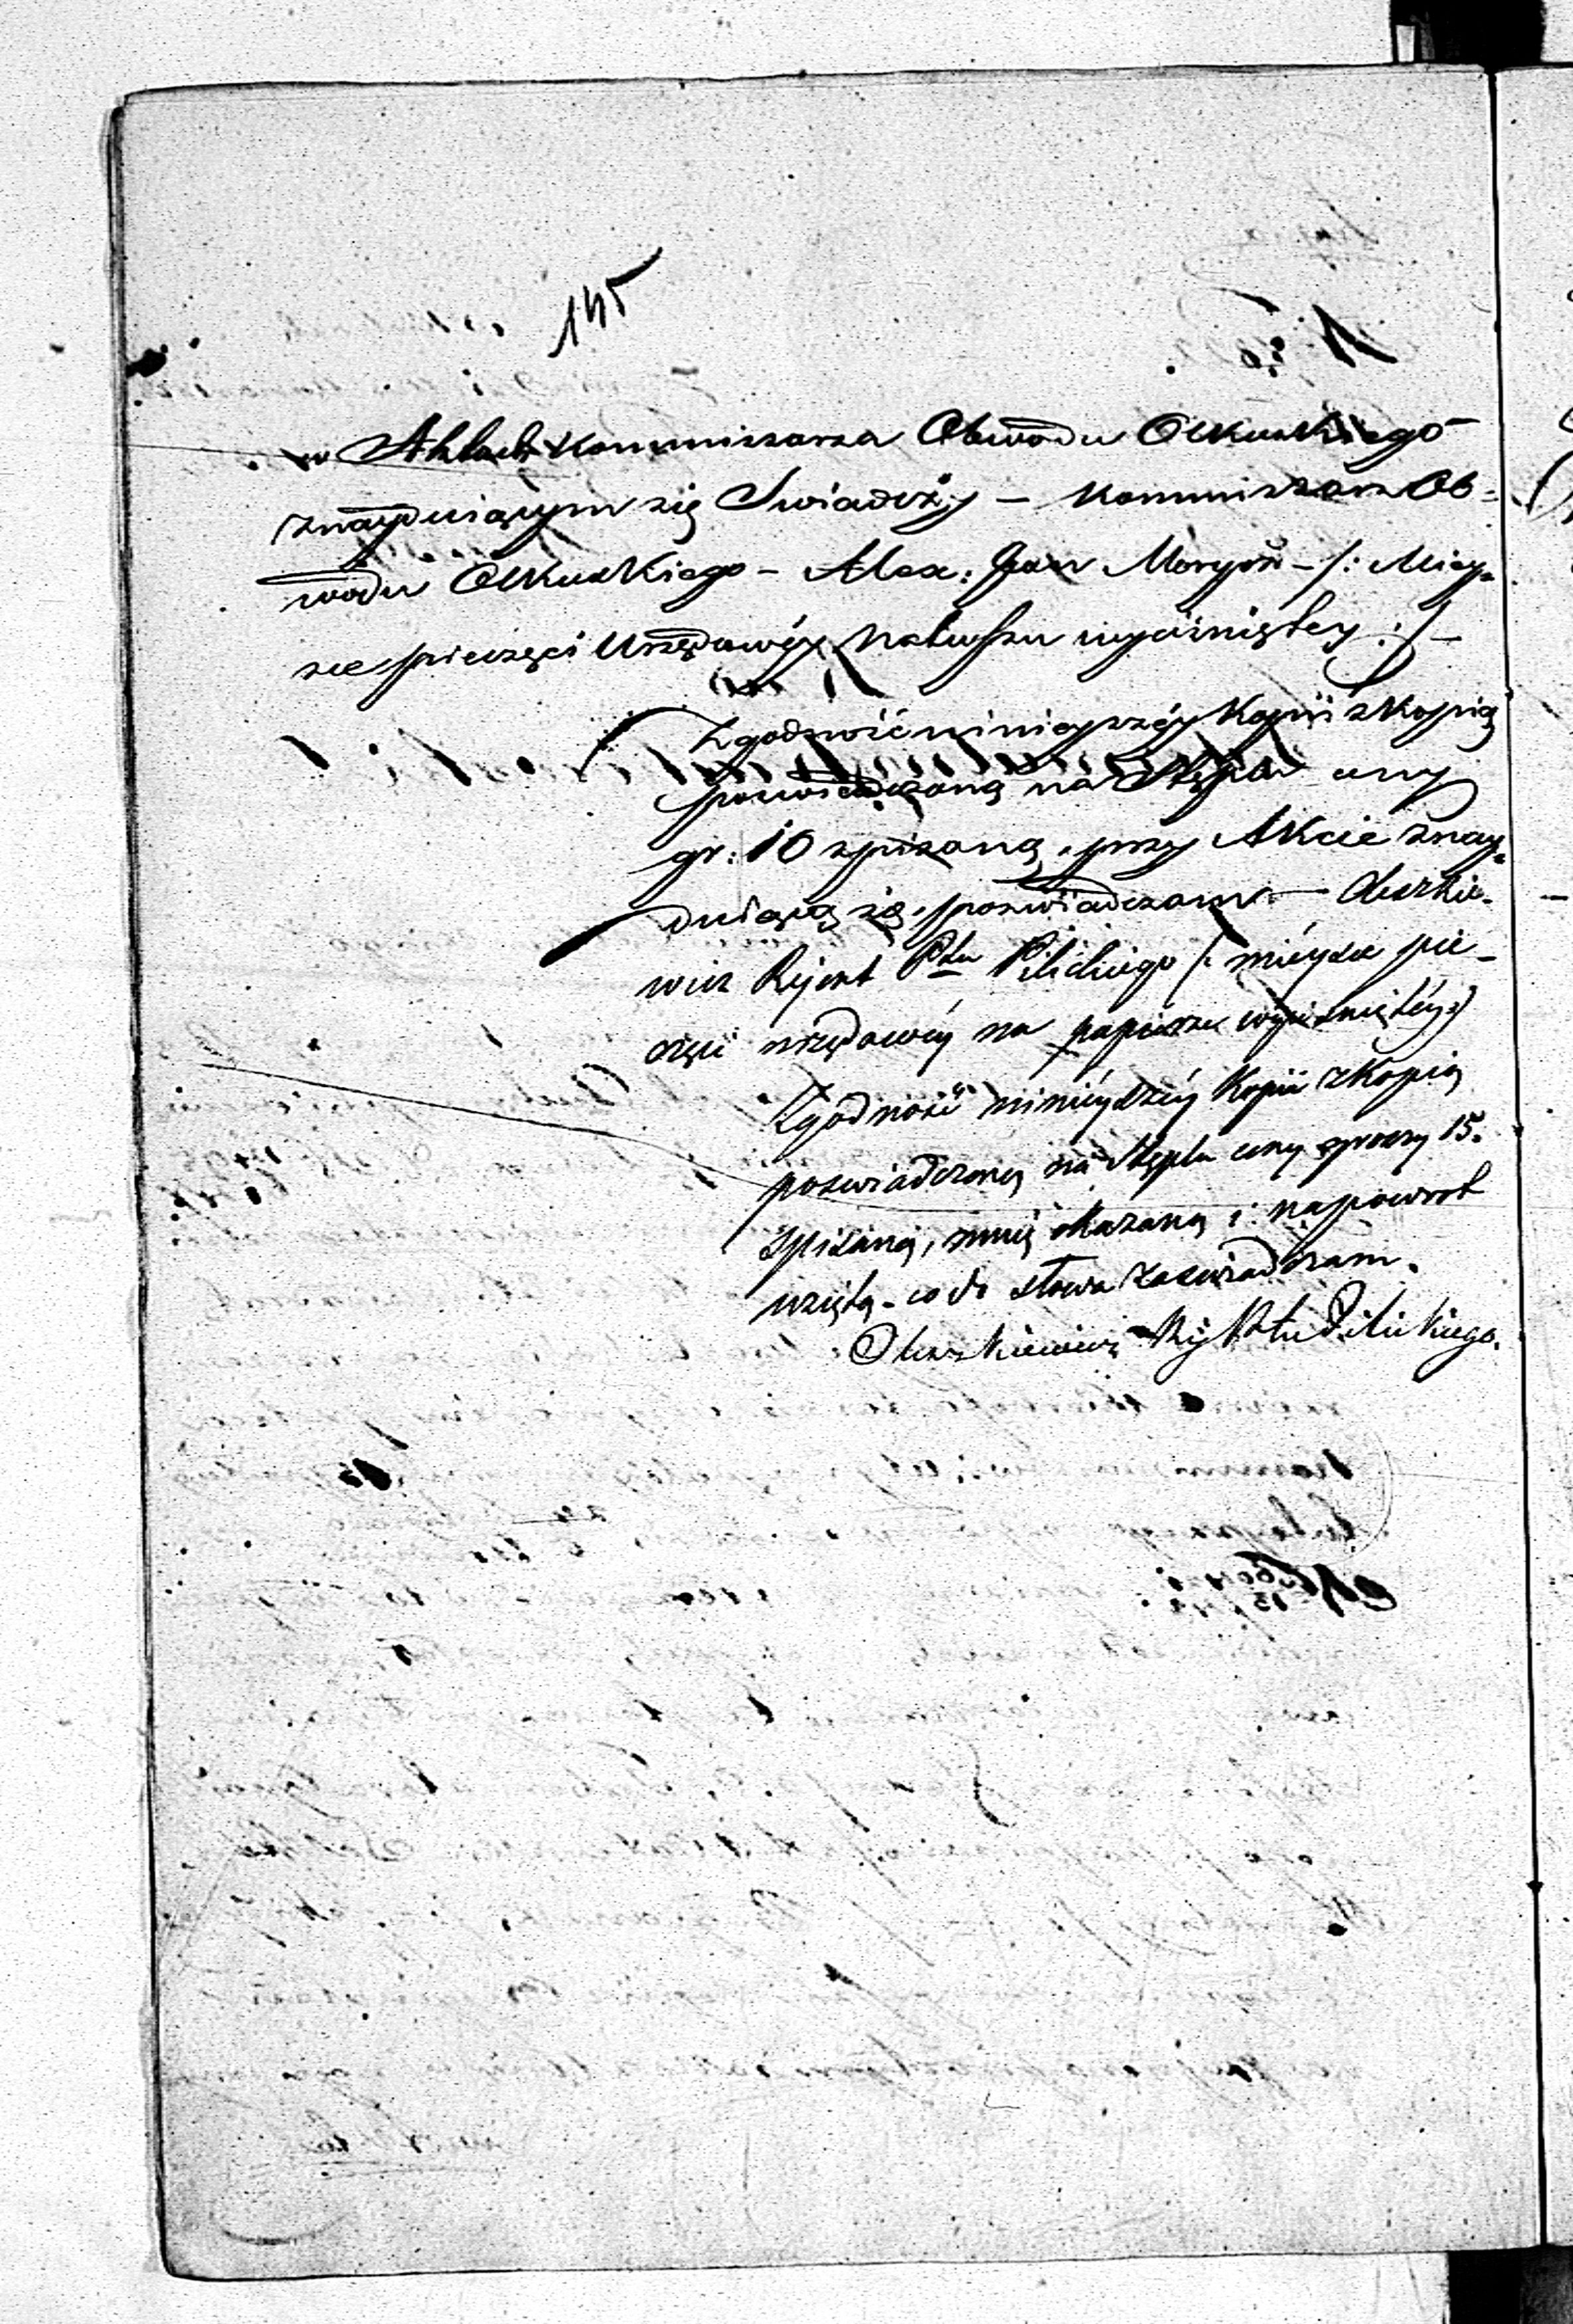 145
w Aktach Kommissarza Obwodu Olkuskiego
znayduiącym się Swiadczy – Kommissarz Ob-
wodu Olkuskiego – Alex: Jan – /: Miey-
sce pieczęci Urzędowéy na tuszu wyciniętey :/ –
Zgodność ninieyszéy Kopii z Kopią
poswiadczoną na Stęplu ceny
gr: 10 spisaną, przy Akcie znay-
duiącą się, poswiadczam –
wicz Rejent Ptu Pilickiego /: miéysce pie-
częci urzędowéy na papierze wyciśniętéy :/
Zgodność ninieyszéy Kopii z Kopią
poswiadczoną na Stęplu ceny groszy 15.
spisaną, mnię okazaną i napowrot
wziętą - co do słowa zaswiadczam.
Rej Ptu Pilickiego.